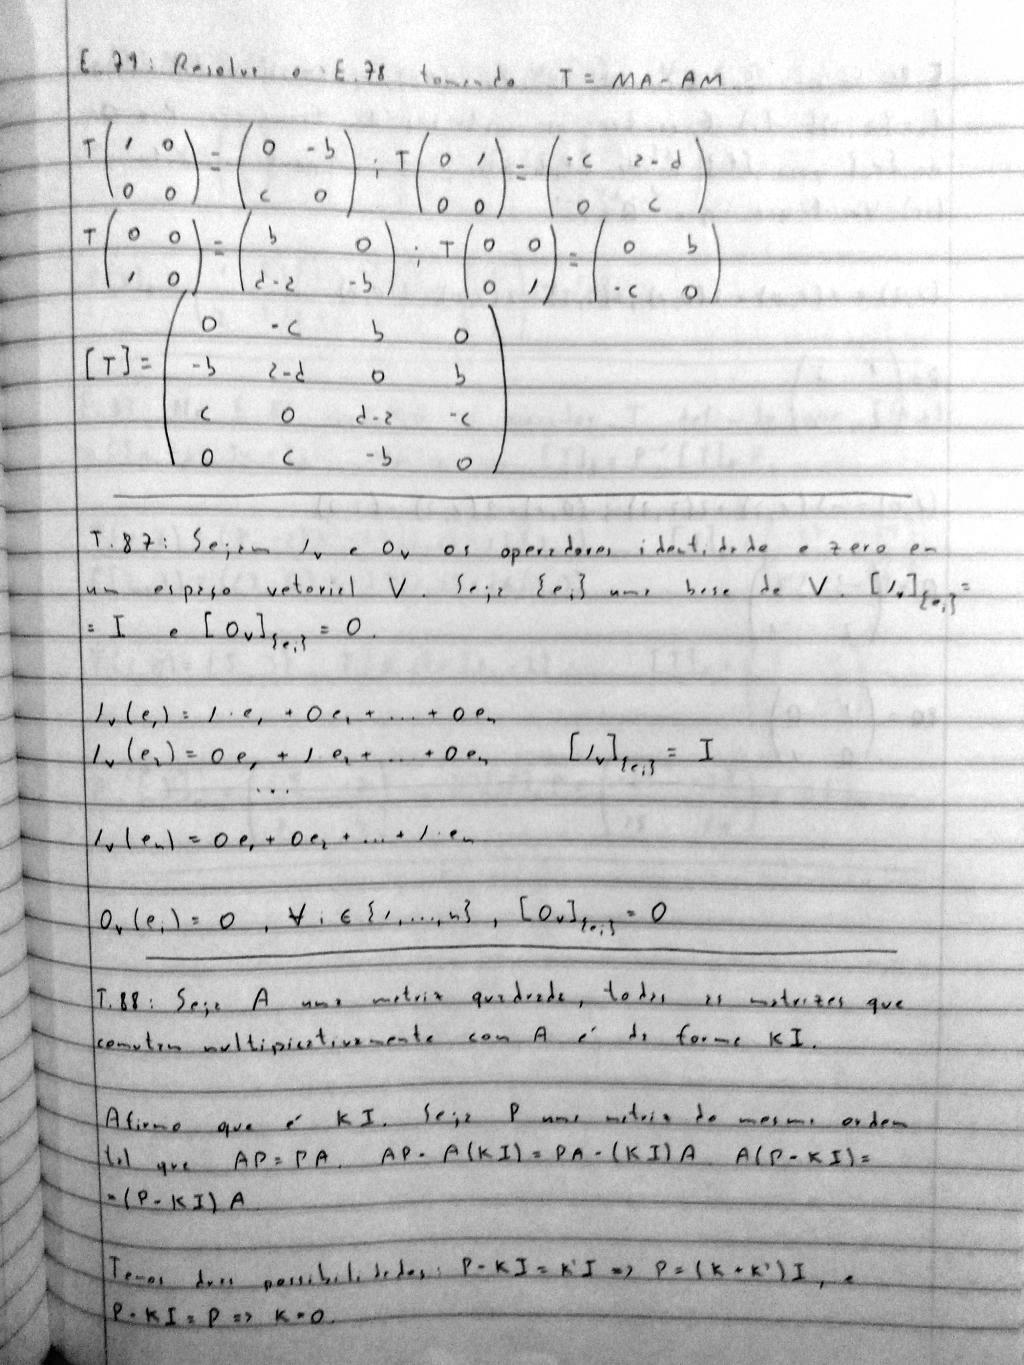 E.79: Resolver o E.78 tomando T = MA - AM.
T(1 0 / 0 0) = (0 -b / c 0) ; T(0 1 / 0 0) = (-c a-d / 0 c)
T(0 0 / 1 0) = (b 0 / d-a -b) ; T(0 0 / 0 1) = (0 b / -c 0)
0 -c b 0
[T] = -b a-d 0 b
c 0 d-a -c
0 c -b 0
T.87: Sejam 1v e 0v os operadores identidade e zero em
um espaço vetorial V. Seja {ei} uma base de V. [1v]{ei} =
= I e [0v]{ei} = 0.
1v(e1) = 1·e1 + 0e2 + ... + 0en
1v(e2) = 0e1 + 1·e2 + ... + 0en [1v]{ei} = I
...
1v(en) = 0e1 + 0e2 + ... + 1·en
0v(ei) = 0, ∀ i ∈ {1,...,n}, [0v]{ei} = 0
T.88: Seja A uma matriz quadrada, todas as matrizes que
comutam multiplicativamente com A é da forma KI.
Afirmo que é KI. Seja P uma matriz de mesma ordem
tal que AP = PA. AP - A(KI) = PA - (KI)A A(P-KI) =
= (P-KI)A
Temos duas possibilidades: P-KI = K'I => P = (K+K')I, e
P-KI = P => K=0.